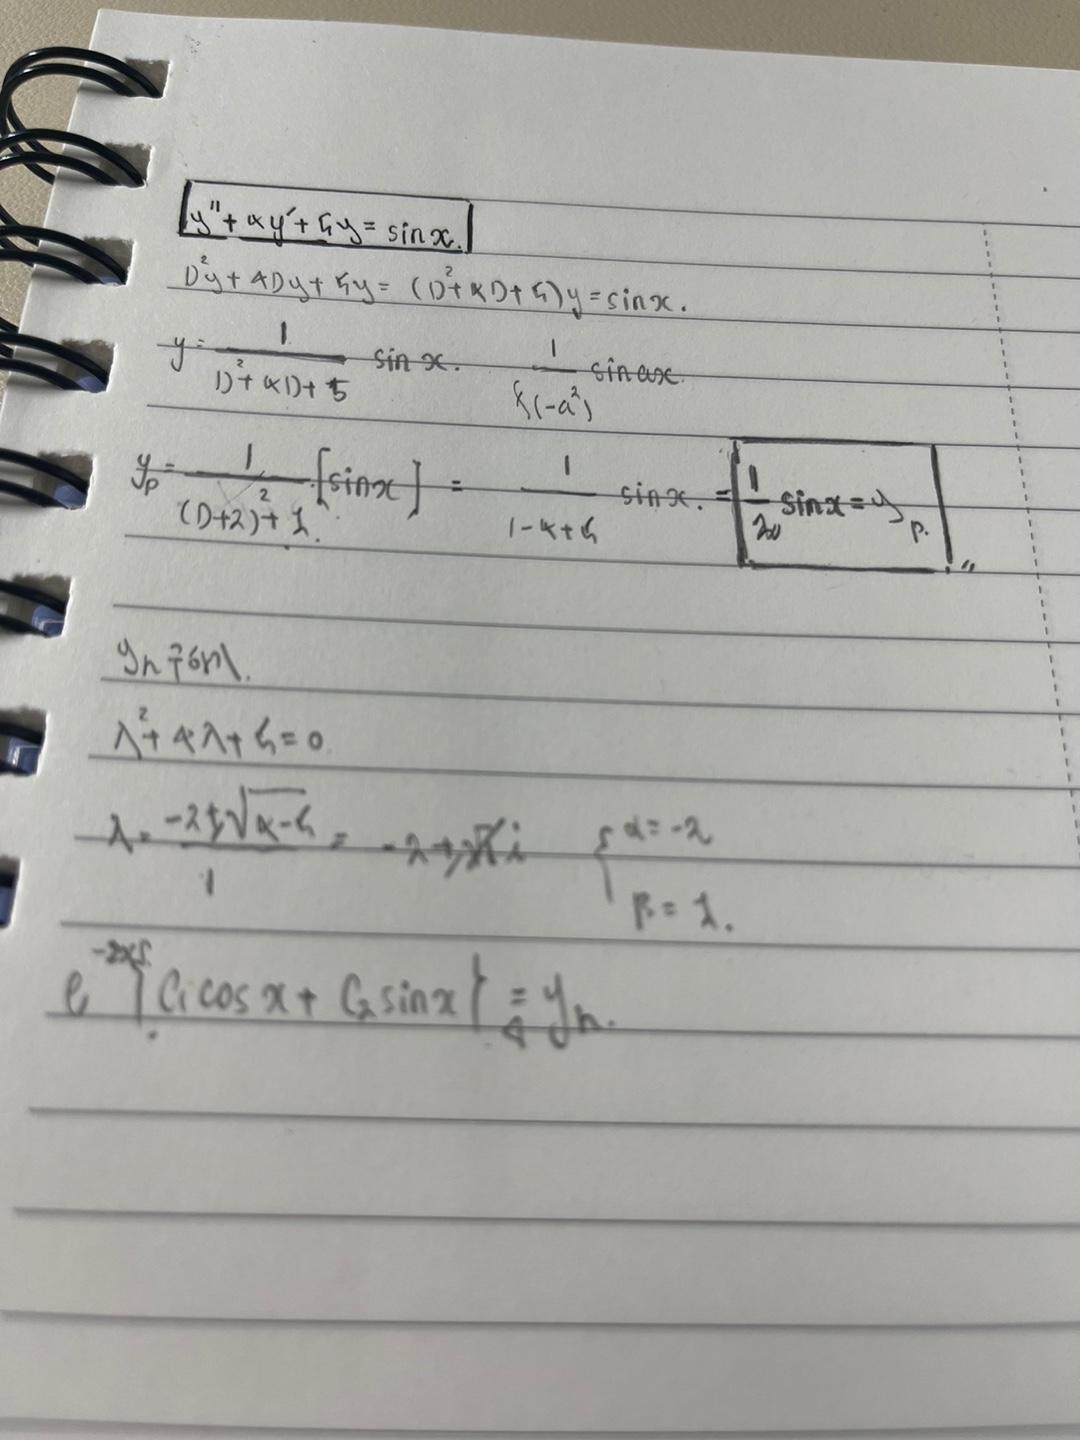 y'' + 4y' + 5y = sin x.
D²y + 4Dy + 5y = (D² + 4D + 5)y = sin x.
y = 1/(D² + 4D + 5) sin x. 1/f(-a²) sin ax.
y_p = 1/((D+2)² + 1) [sin x] = 1/(1-4+5) sin x. = 1/20 sin x = y_p.
y_h
λ² + 4λ + 5 = 0
λ = (-2 ± √(4-5))/1 = -2 ± i { α = -2
β = 1.
e^(-2x) {C₁ cos x + C₂ sin x} = y_h.